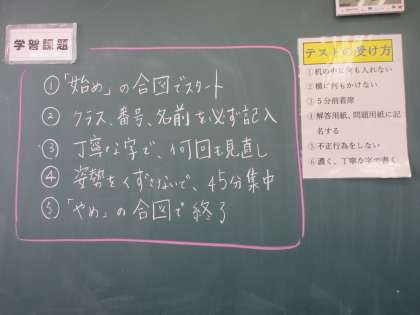 学習課題
①「始め」の合図でスタート
②クラス、番号、名前を必ず記入
③丁寧な字で、何回も見直し
④姿勢をくずさないで、45分集中
⑤「やめ」の合図で終了
テストの受け方
①机の中に何も入れない
②横に何もかけない
③5分前着席
④解答用紙、問題用紙に記
名する
⑤不正行為をしない
⑥濃く、丁寧な字で書く